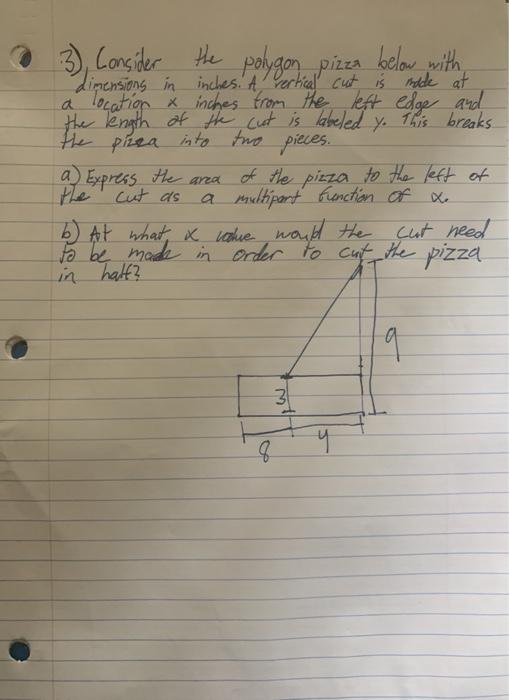 3) Consider the polygon pizza below with
dimensions in inches. A vertical cut is made at
a location x inches from the left edge and
the length of the cut is labeled y. This breaks
the pizza into two pieces.
a) Express the area of the pizza to the left of
the cut as a multipart function of x.
b) At what x value would the cut need
to be made in order to cut the pizza
in half?
9
3
8 4